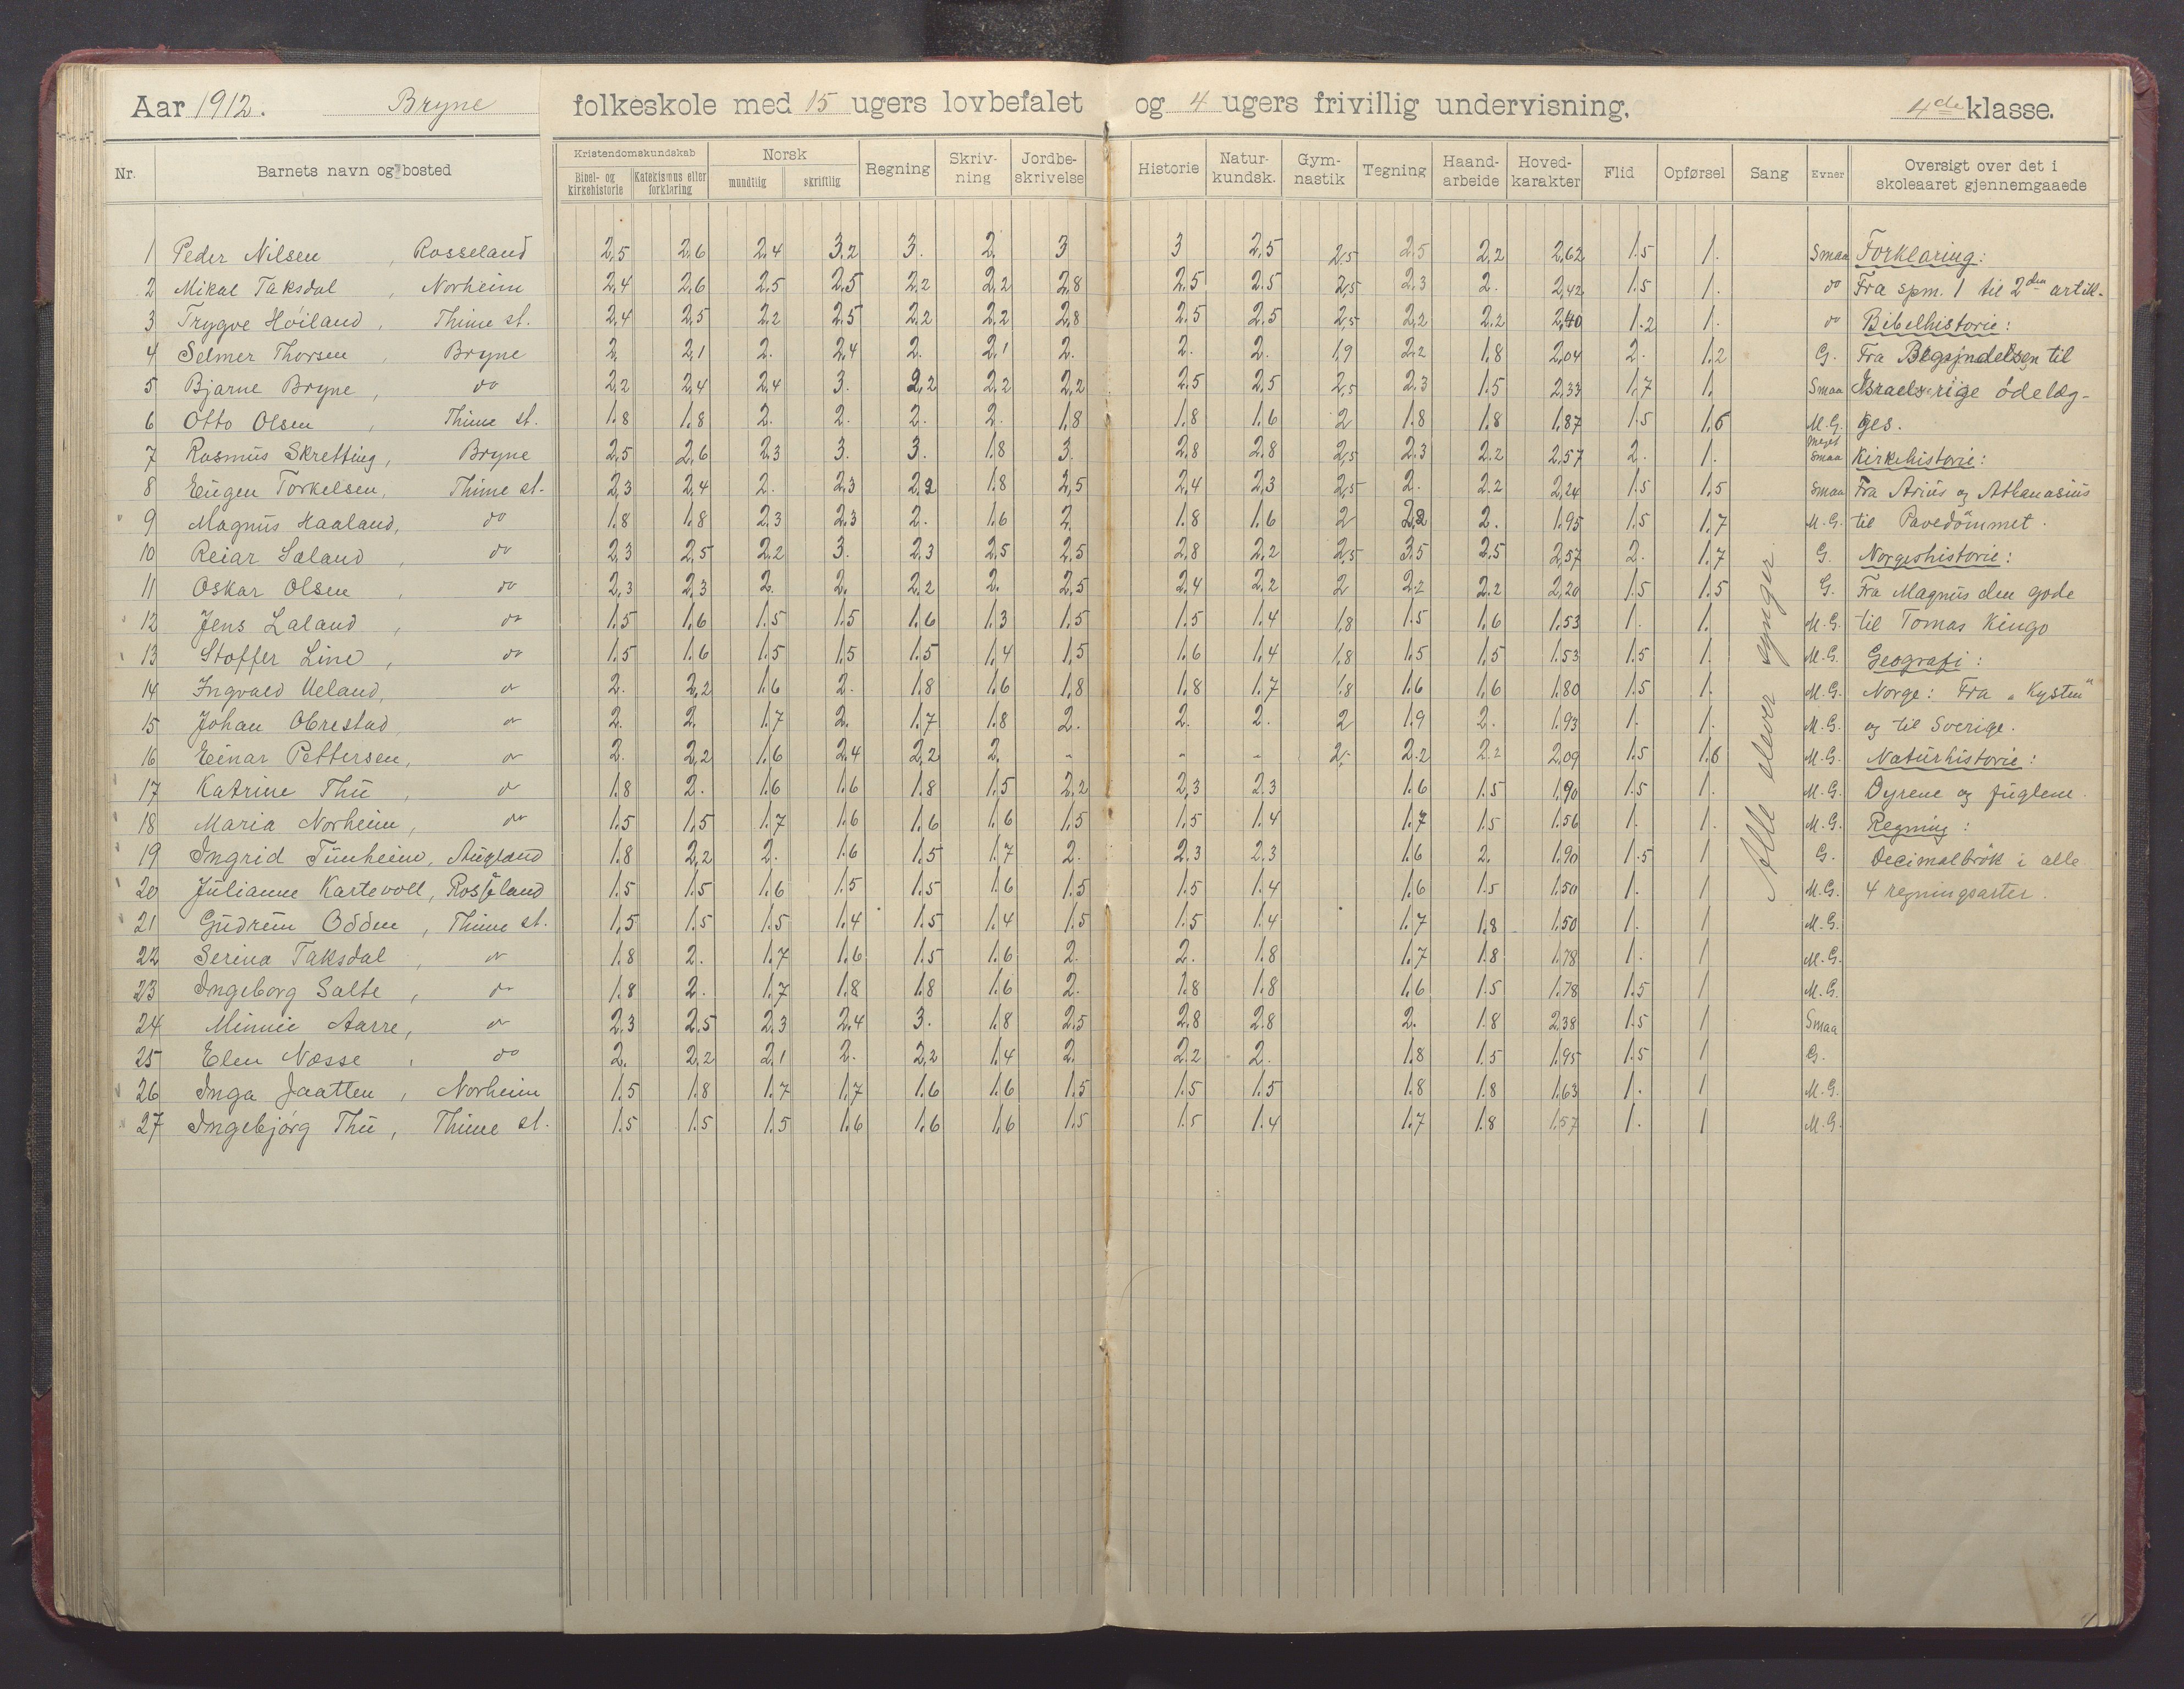 Aar 1912. Bryne folkeskole med 15 ugers lovbefalet og 4 ugers frivillig undervisning. 4de klasse.
Nr. Barnets navn og bosted Kristendomskundskab Bibel- og kirkehistorie Katekismus eller forklaring Norsk mundtlig skriftlig Regning Skrivning Jordbeskrivelse Historie Naturkundsk. Gymnastik Tegning Haandarbeide Hovedkarakter Flid Opførsel Sang Evner Oversigt over det i skoleaaret gjennemgaaede
1 Peder Nilsen, Rosseland 2,5 2,6 2,4 3,2 3. 2. 3 3 2,5 2,5 2,5 2,2 2,62 1.5 1. Smaa Forklaring:
2 Mikal Taksdal, Norheim 2,4 2,6 2,5 2,5 2,2 2,2 2,8 2,5 2,5 2,5 2,3 2. 2,42 1.5 1. do Fra spm. 1 til 2den artik.
3 Trygve Høiland, Thime st. 2,4 2,5 2,2 2,5 2,2 2,2 2,8 2,5 2,5 2,5 2,2 2,2 2,40 1.2 1. do Bibelhistorie:
4 Selmer Thorsen, Bryne 2. 2,1 2. 2,4 2. 2,1 2. 2. 2. 1,9 2,2 1,8 2,04 2. 1,2 G. Fra Begyndelsen til
5 Bjarne Bryne, do 2,2 2,4 2,4 3. 2,2 2,2 2,2 2,5 2,5 2,5 2,3 1.5 2,33 1,7 1. Smaa Israels rige ödelæg-
6 Otto Olsen, Thime st. 1.8 1.8 2. 2. 2. 2. 1,8 1,8 1,6 2 1,8 1,8 1,87 1.5 1,6 M.G. ges.
7 Rasmus Skretting, Bryne 2,5 2,6 2,3 3. 3. 1.8 3. 2,8 2,8 2,5 2.3 2.2 2,57 2. 1. meget smaa Kirkehistorie:
8 Eugen Torkelsen, Thime st. 2,3 2,4 2. 2,3 2,2 1.8 2,5 2,4 2,3 2,5 2. 2.2 2,24 1.5 1,5 Smaa Fra Arius og Athanasius
9 Magnus Haaland, do 1.8 1.8 2,3 2,3 2. 1.6 2. 1.8 1.6 2 2,2 2. 1.95 1.5 1.7 M.G. til Pavedömmet.
10 Reiar Laland, do 2,3 2,5 2.2 3. 2.3 2.5 2,5 2,8 2,2 2,5 3.5 2.5 2,57 2. 1.7 G. Norgeshistorie:
11 Oskar Olsen, do 2,3 2,3 2. 2. 2,2 2. 2,5 2,4 2,2 2 2.2 2.2 2,20 1.5 1.5 G. Fra Magnus den gode
12 Jens Laland, do 1.5 1.6 1.5 1.5 1.6 1.3 1.5 1.5 1.4 1,8 1.5 1,6 1.53 1. 1. M.G. til Tomas Kingo
13 Stoffer Line, do 1.5 1.6 1.5 1.5 1.5 1.4 1.5 1.6 1.4 1,8 1.5 1.5 1.53 1.5 1. M.G. Geografi:
14 Ingvald Ueland, do 2. 2,2 1.6 2. 1.8 1.6 1.8 1.8 1.7 1.8 1.6 1.6 1.80 1.5 1. M.G. Norge: Fra „Kysten"
15 Johan Obrestad do 2. 2. 1.7 2. 1.7 1.8 2. 2. 2. 2 1.9 2. 1.93 1. 1. M.G. og til Sverige.
16 Einar Pettersen, do 2. 2,2 1.6 2.4 2,2 2. - - - 2,- 2.2 2.2 2,09 1.5 1.6 M.G. Naturhistorie:
17 Katrine Thu, do 1.8 2. 1.6 1.6 1.8 1.5 2,2 2,3 2.3 1.6 1.5 1,90 1.5 1. M.G. Dyrene og fuglene.
18 Maria Norheim, do 1.5 1.5 1.7 1.6 1.6 1.6 1.5 1.5 1.4 1.7 1.5 1.56 1. 1. M.G. Regning:
19 Ingrid Tunheim, Augland 1.8 2,2 2. 1.6 1.5 1.7 2. 2.3 2.3 1.6 2. 1.90 1.5 1 G. Decimalbrök i alle
20 Julianne Kartevoll, Rosseland 1.5 1.5 1.6 1.5 1.5 1.6 1.5 1.5 1.4 1.6 1.5 1.50 1. 1 M.G. 4 regningsarter.
Alle elever synger
21 Gudrun Odden, Thime st. 1,5 1.5 1.5 1.4 1.5 1.4 1.5 1.5 1.4 1.7 1,8 1.50 1. 1 M.G.
22 Serina Taksdal, do 1.8 2. 1.7 1.6 1.5 1.6 2. 2. 1.8 1.7 1.8 1.78 1. 1 M.G.
23 Ingeborg Salte, do 1.8 2. 1.7 1.8 1.8 1.6 2. 1.8 1.8 1.6 1.5 1.78 1.5 1 M.G.
24 Minnie Aarre, do 2,3 2,5 2,3 2,4 3. 1.8 2,5 2,8 2,8 2. 1.8 2.38 1.5 1 Smaa
25 Elen Næsse, do 2. 2,2 2,1 2. 2,2 1.4 2. 2.2 2. 1.8 1.5 1.95 1.5 1 G.
26 Inga Jaatten, Norheim 1.5 1.8 1.7 1.7 1.6 1.6 1.5 1.5 1.5 1.8 1.8 1.63 1. 1 M.G.
27 Ingebjørg Thu, Thime st. 1.5 1.5 1.5 1.6 1.6 1.6 1.5 1.5 1.4 1.7 1.8 1.57 1. 1 M.G.